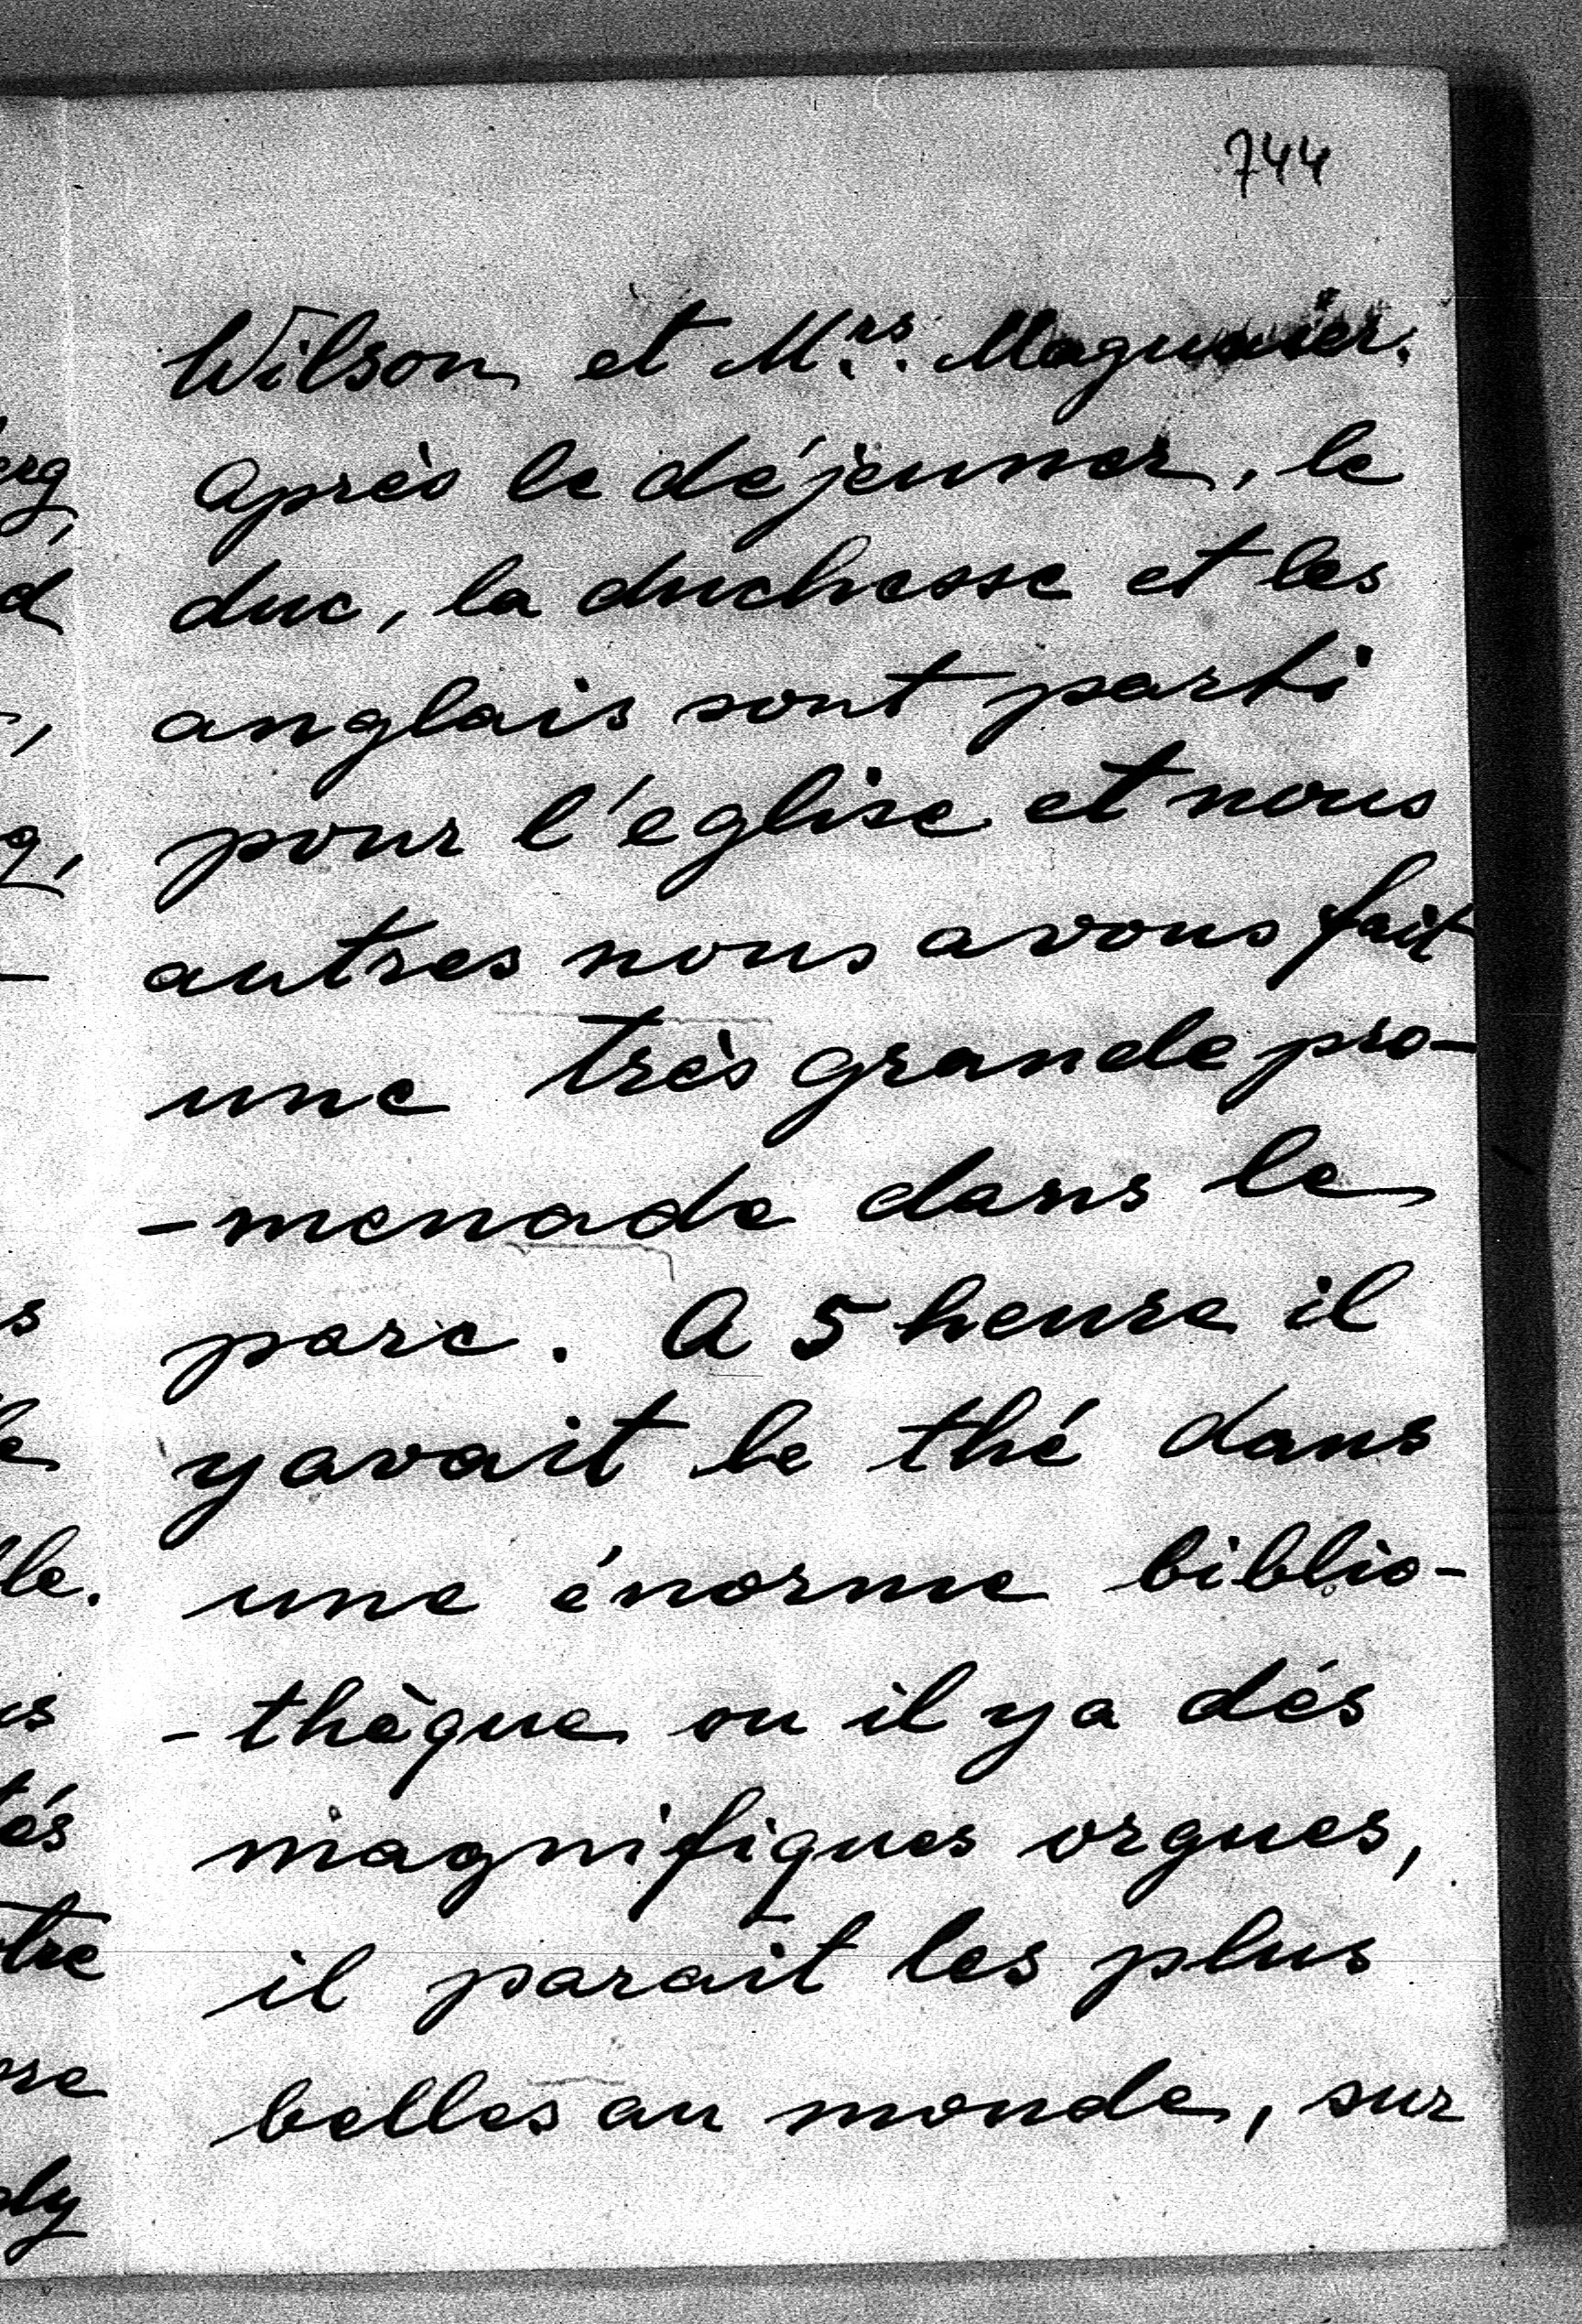 744
Wilson et Mrs.
Après le déjeuner, le
duc, la duchesse et les
anglais sont parti
pour l'église et nous
autres nous avons fait
une très grande pro-
-menade dans le
parc. A 5 heure il
y avait le thé dans
une énorme biblio-
-thèque ou il y a dés
magnifiques orgues,
il parait les plus
belles au monde, sur